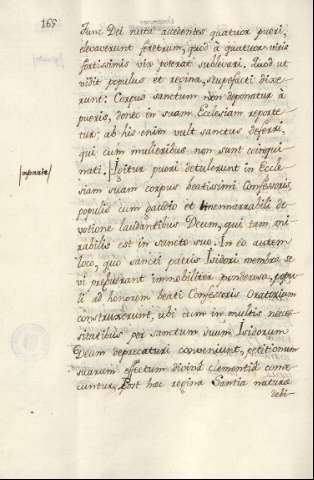 165
Tunc Dei nutu accedentes quatuor pueri,
elevaverunt feretrum, quod à quatuor viris
fortissimis vix poterat sublevari. Quod ut
vidit populus et regina, stupefacti dixe
runt: Corpus sanctum non deponatur à
pueris, donec in suam Ecclesiam reporte
tur; ab his enim vult sanctus deferri,
qui cum mulieribus non sunt coinqui
nati. Igitur pueri detulerunt in Eccle
siam suam corpus beatissimi Confessoris,
populis cum gaudio et innenarrabili de
votione laudantibus Deum, qui tam mi
rabilis est in sancto suo. In eo autem
loco, quo sancti patris Isidori membra, se
vi præbuerant immobiliter ponderosa, popu
li ad honorem beati Confessoris Oratorium
construxerunt, ubi cum in multis neces
sitatibus per sanctum suum Isidorum
Deum deprecaturi conveniunt, petitionum
suarum effectum divina clementia conse
cuntur. Post hæc regina Santia naturæ
debi-